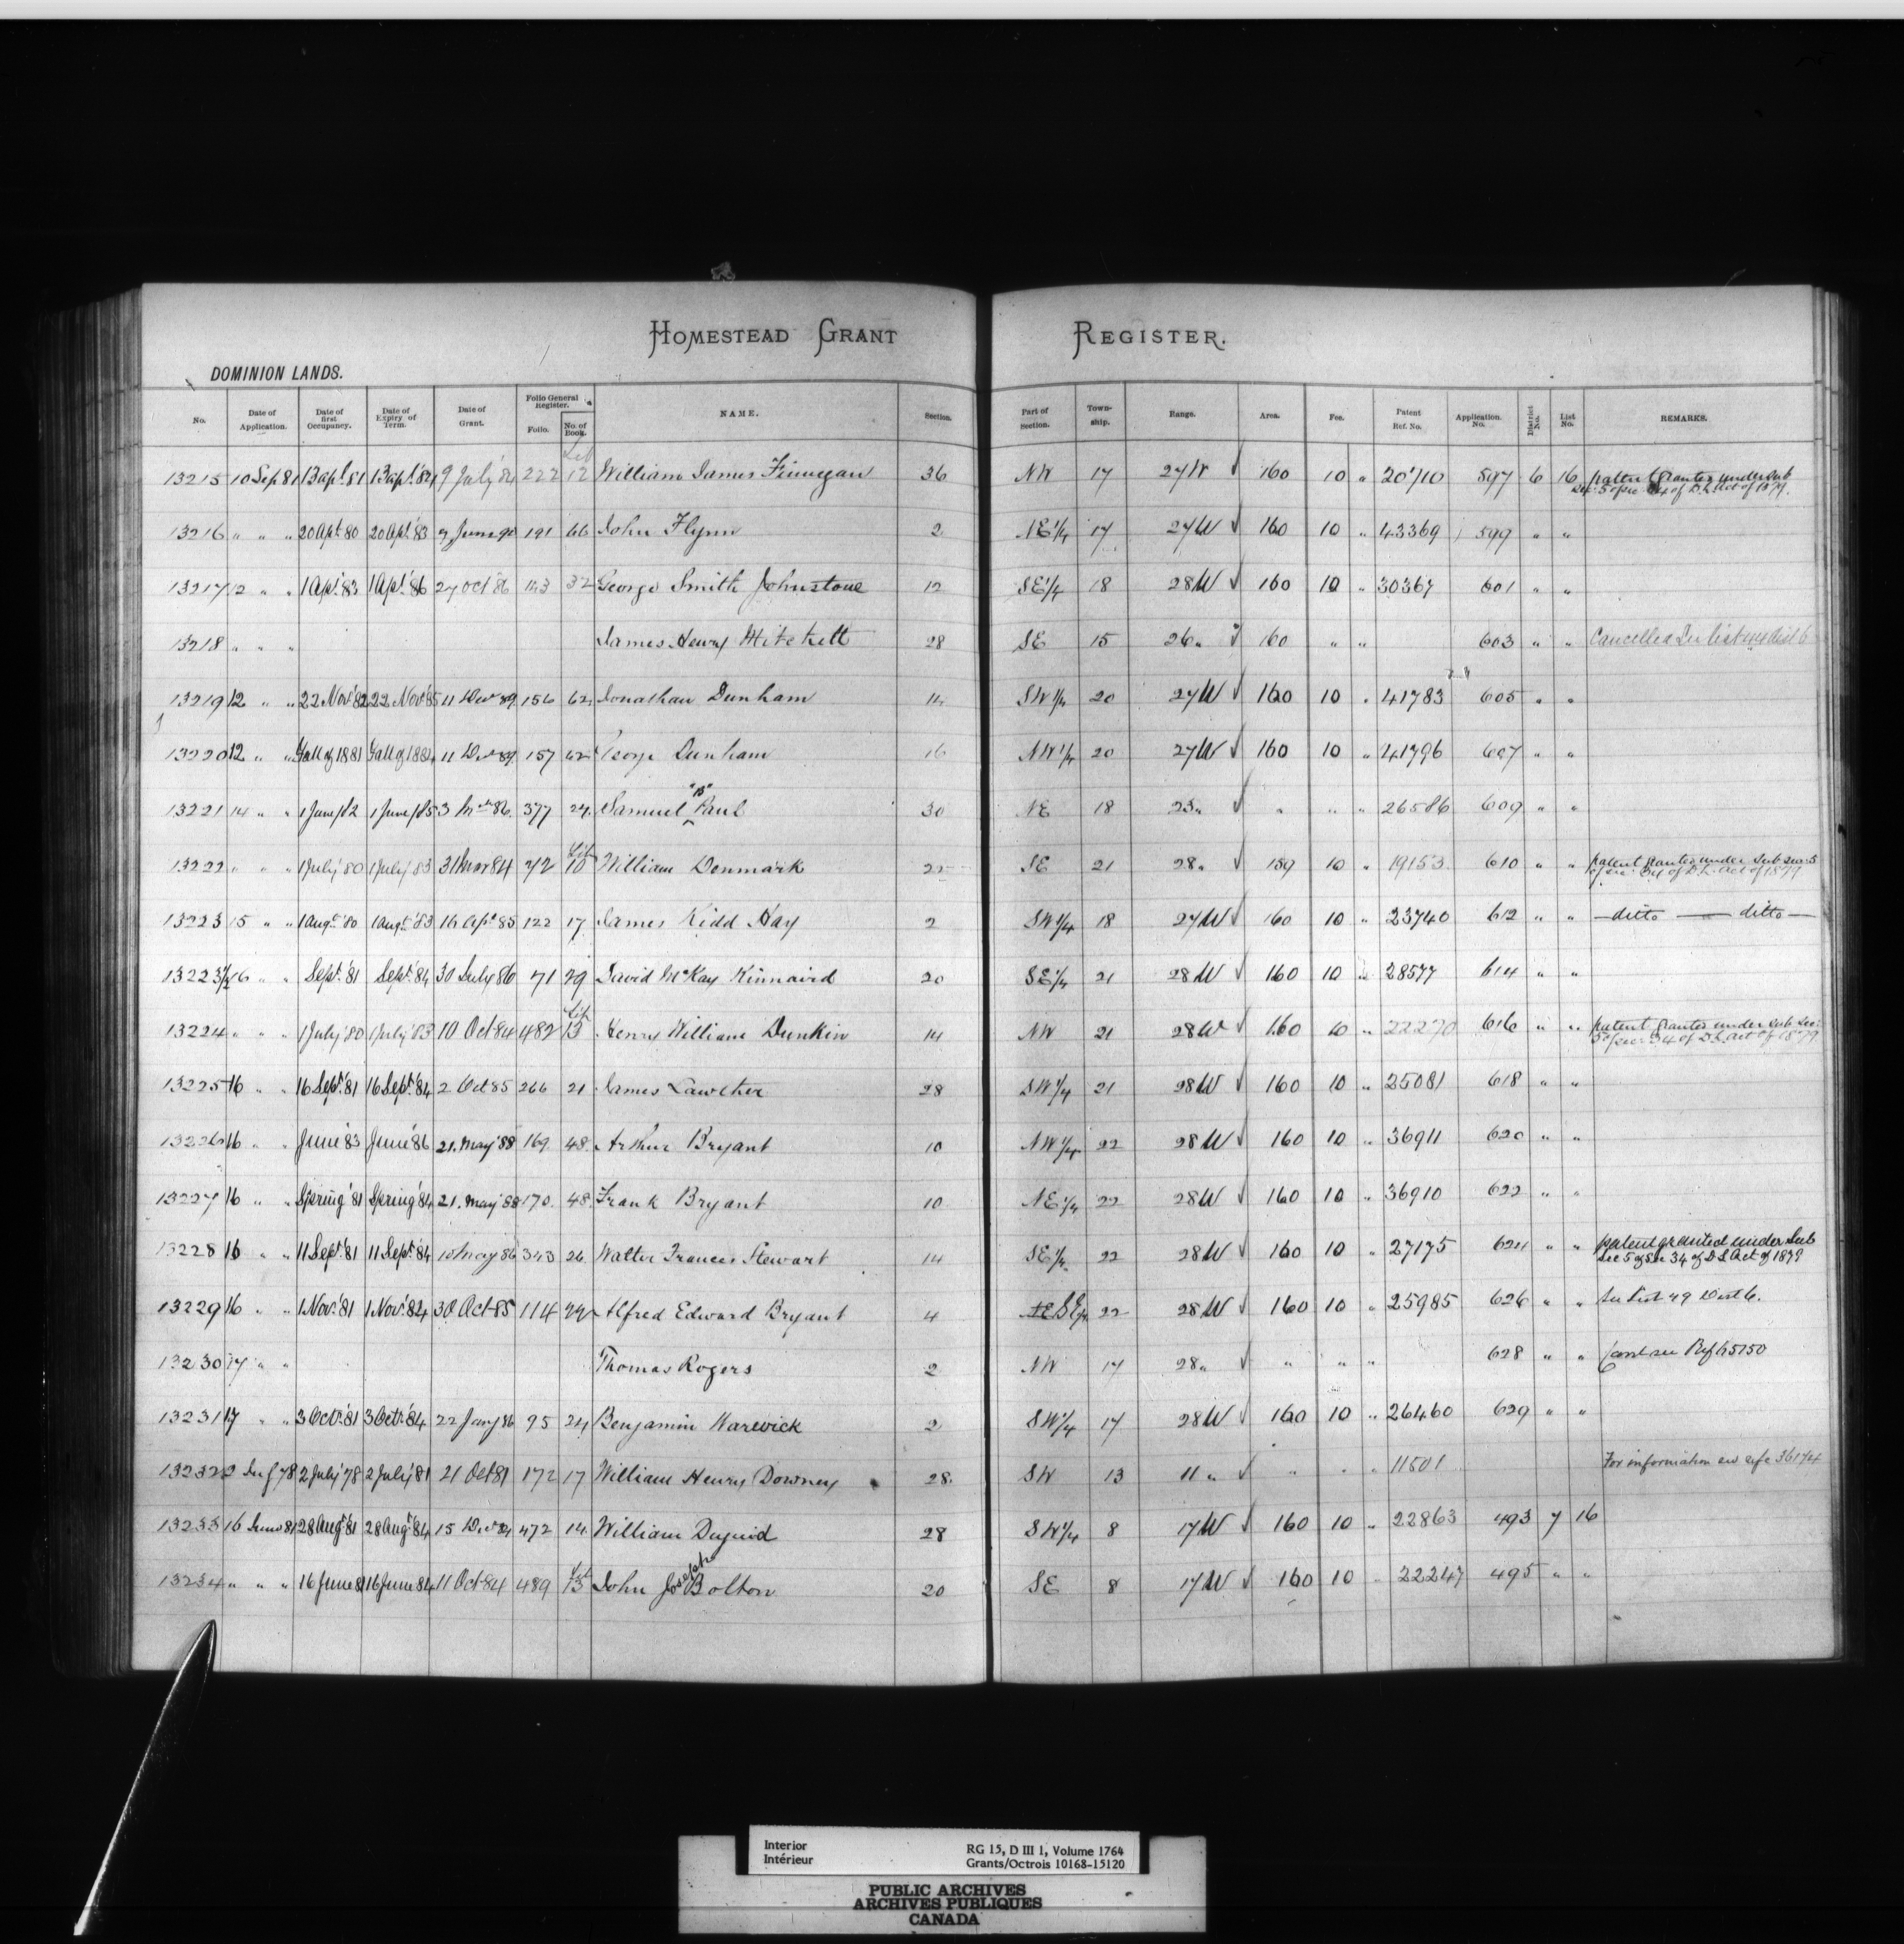 HOMESTEAD GRANT REGISTER.
DOMINION LANDS.
No. Date of Application. Date of first Occupancy. Date of Expiry of Term. Date of Grant. Folio General Register. Folio. No. of Book. NAME. Section. Part of Section. Township. Range. Area. Fee. Patent Ref. No. Application. No. District No. List No. REMARKS.
13215 10 Sep 81 1 Apl 81 1 Apl '84 9 July '84 222 Lib 12 William James Finnegan 36 NW 17 27W √ 160 10 " 20710 597 6 16 patent granted under Sub Sec. 5 of sec 34 of D.L. Act of 1879.
13216 " " " 20 Apl 80 20 Apl 83 191 66 John Flynn 2 NE 1/4 17 27W √ 160 10 " 43369 599 " "
13217 12 " " 1 Apl '83 1 Apl '86 27 Oct 86 143 32 George Smith Johnstone 12 SE 1/4 18 28W √ 160 10 " 30367 601 " "
13218 " " " James Henry Mitchell 28 SE 15 26 " √ 160 " " 603 " " Cancelled
13219 12 " " 22 Nov '82 22 Nov '85 11 Dec 89 156 62 Jonathan Dunham 14 SW 1/4 20 27W √ 160 10 " 41783 605 " "
13220 12 " " Fall of 1881 Fall of 1884 11 Dec 89 157 62 George Dunham 16 NW 1/4 20 27W √ 160 10 " 41796 607 " "
13221 14 " " 1 June /82 1 June /85 3 Mch 86 377 24 Samuel "B" Paul 30 NE 18 23 " √ " " " 26586 609 " "
13222 " " " 1 July '80 1 July '83 31 Mar 84 Lib 10 William Denmark 22 SE 21 28 " √ 159 10 " 19153 610 " " patent granted under Sub sec: 5 of sec: 34 of D.L. Act of 1879
13223 15 " " 1 Augt '80 1 Augt '83 16 Apl 85 122 17 James Kidd Hay 2 SW 1/4 18 27W √ 160 10 " 23740 612 " " — ditto — ditto —
13223 1/2 16 " " Sept. '81 Sept. '84 30 July 86 71 29 David McKay Kinnaird 20 SE 1/4 21 28W √ 160 10 " 28577 614 " "
13224 " " " 1 July '80 1 July '83 10 Oct 84 482 Lib 13 Henry William Dunkin 14 NW 21 28W √ 160 10 " 22270 616 " " patent granted under Sub Sec: 5 of sec: 34 of D.L. Act of 1879
13225 16 " " 16 Sept. '81 16 Sept. '84 2 Oct 85 266 21 James Lawther 28 SW 1/4 21 28W √ 160 10 " 25081 618 " "
13226 16 " " June '83 June '86 21. May '88 169. 48. Arthur Bryant 10 NW 1/4 22 28W √ 160 10 " 36911 620 " "
13227 16 " " Spring '81 Spring '84 21. May '88 170. 48. Frank Bryant 10 NE 1/4 22 28W √ 160 10 " 36910 622 " "
13228 16 " " 11 Sept. '81 11 Sept. '84 10 May 86 343 26 Walter Frances Stewart 14 SE 1/4 22 28W √ 160 10 " 27175 624 " " patent granted under Sub Sec 5 of Sec 34 of D L Act of 1879
13229 16 " " 1 Nov. '81 1 Nov. '84 30 Oct 85 114 22 Alfred Edward Bryant 4 SE 1/4 22 28W √ 160 10 " 25985 626 " " See List 49 Dist 6.
13230 17 " " Thomas Rogers 2 NW 17 28 " √ " " " 628 " " Ref 65150
13231 17 " " 3 Oct. '81 3 Oct. '84 22 Jany 86 95 24 Benjamin Warwick 2 SW 1/4 17 28W √ 160 10 " 26460 629 " "
13232 2 July 78 2 July '78 2 July '81 21 Oct 81 172 17 William Henry Downey 28. SW 13 11 " √ " " " 11501 For information see refce 36174
13233 16 June 81 28 Augt '81 28 Augt '84 15 Dec 84 472 14. William Duguid 28 SW 1/4 8 17W √ 160 10 " 22863 493 7 16
13234 " " " 16 June 81 16 June 84 11 Oct 84 489 Lib 13 John Joseph Bolton 20 SE 8 17W √ 160 10 " 22247 495 " "
Interior
Intérieur
RG 15, D III 1, Volume 1764
Grants/Octrois 10168-15120
PUBLIC ARCHIVES
ARCHIVES PUBLIQUES
CANADA